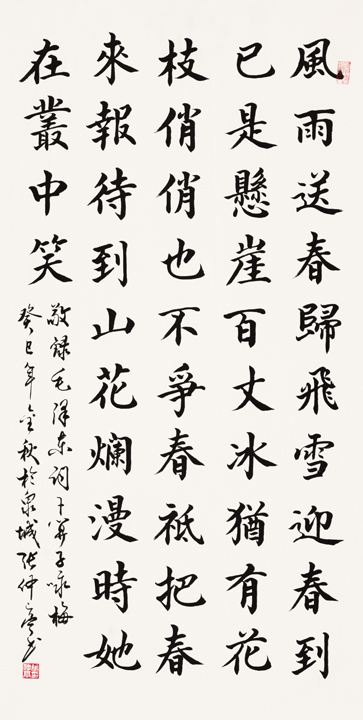 風雨送春歸飛雪迎春到
已是懸崖百丈冰猶有花
枝俏俏也不爭春祗把春
來報待到山花爛漫時她
在叢中笑
敬錄毛澤東詞卜算子咏梅
癸巳年金秋於泉城張仲亭書